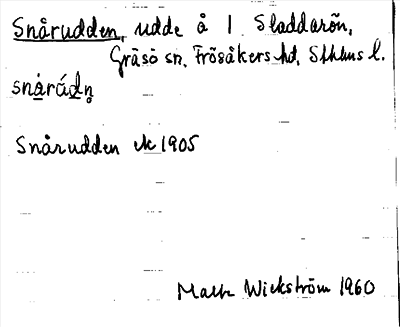 Snårudden, udde å 1 Sladdarön,
Gräsö sn, Frösåkers hd, Sthlms l.
snårúdn̥
Snårudden ek 1905
Wickström 1960